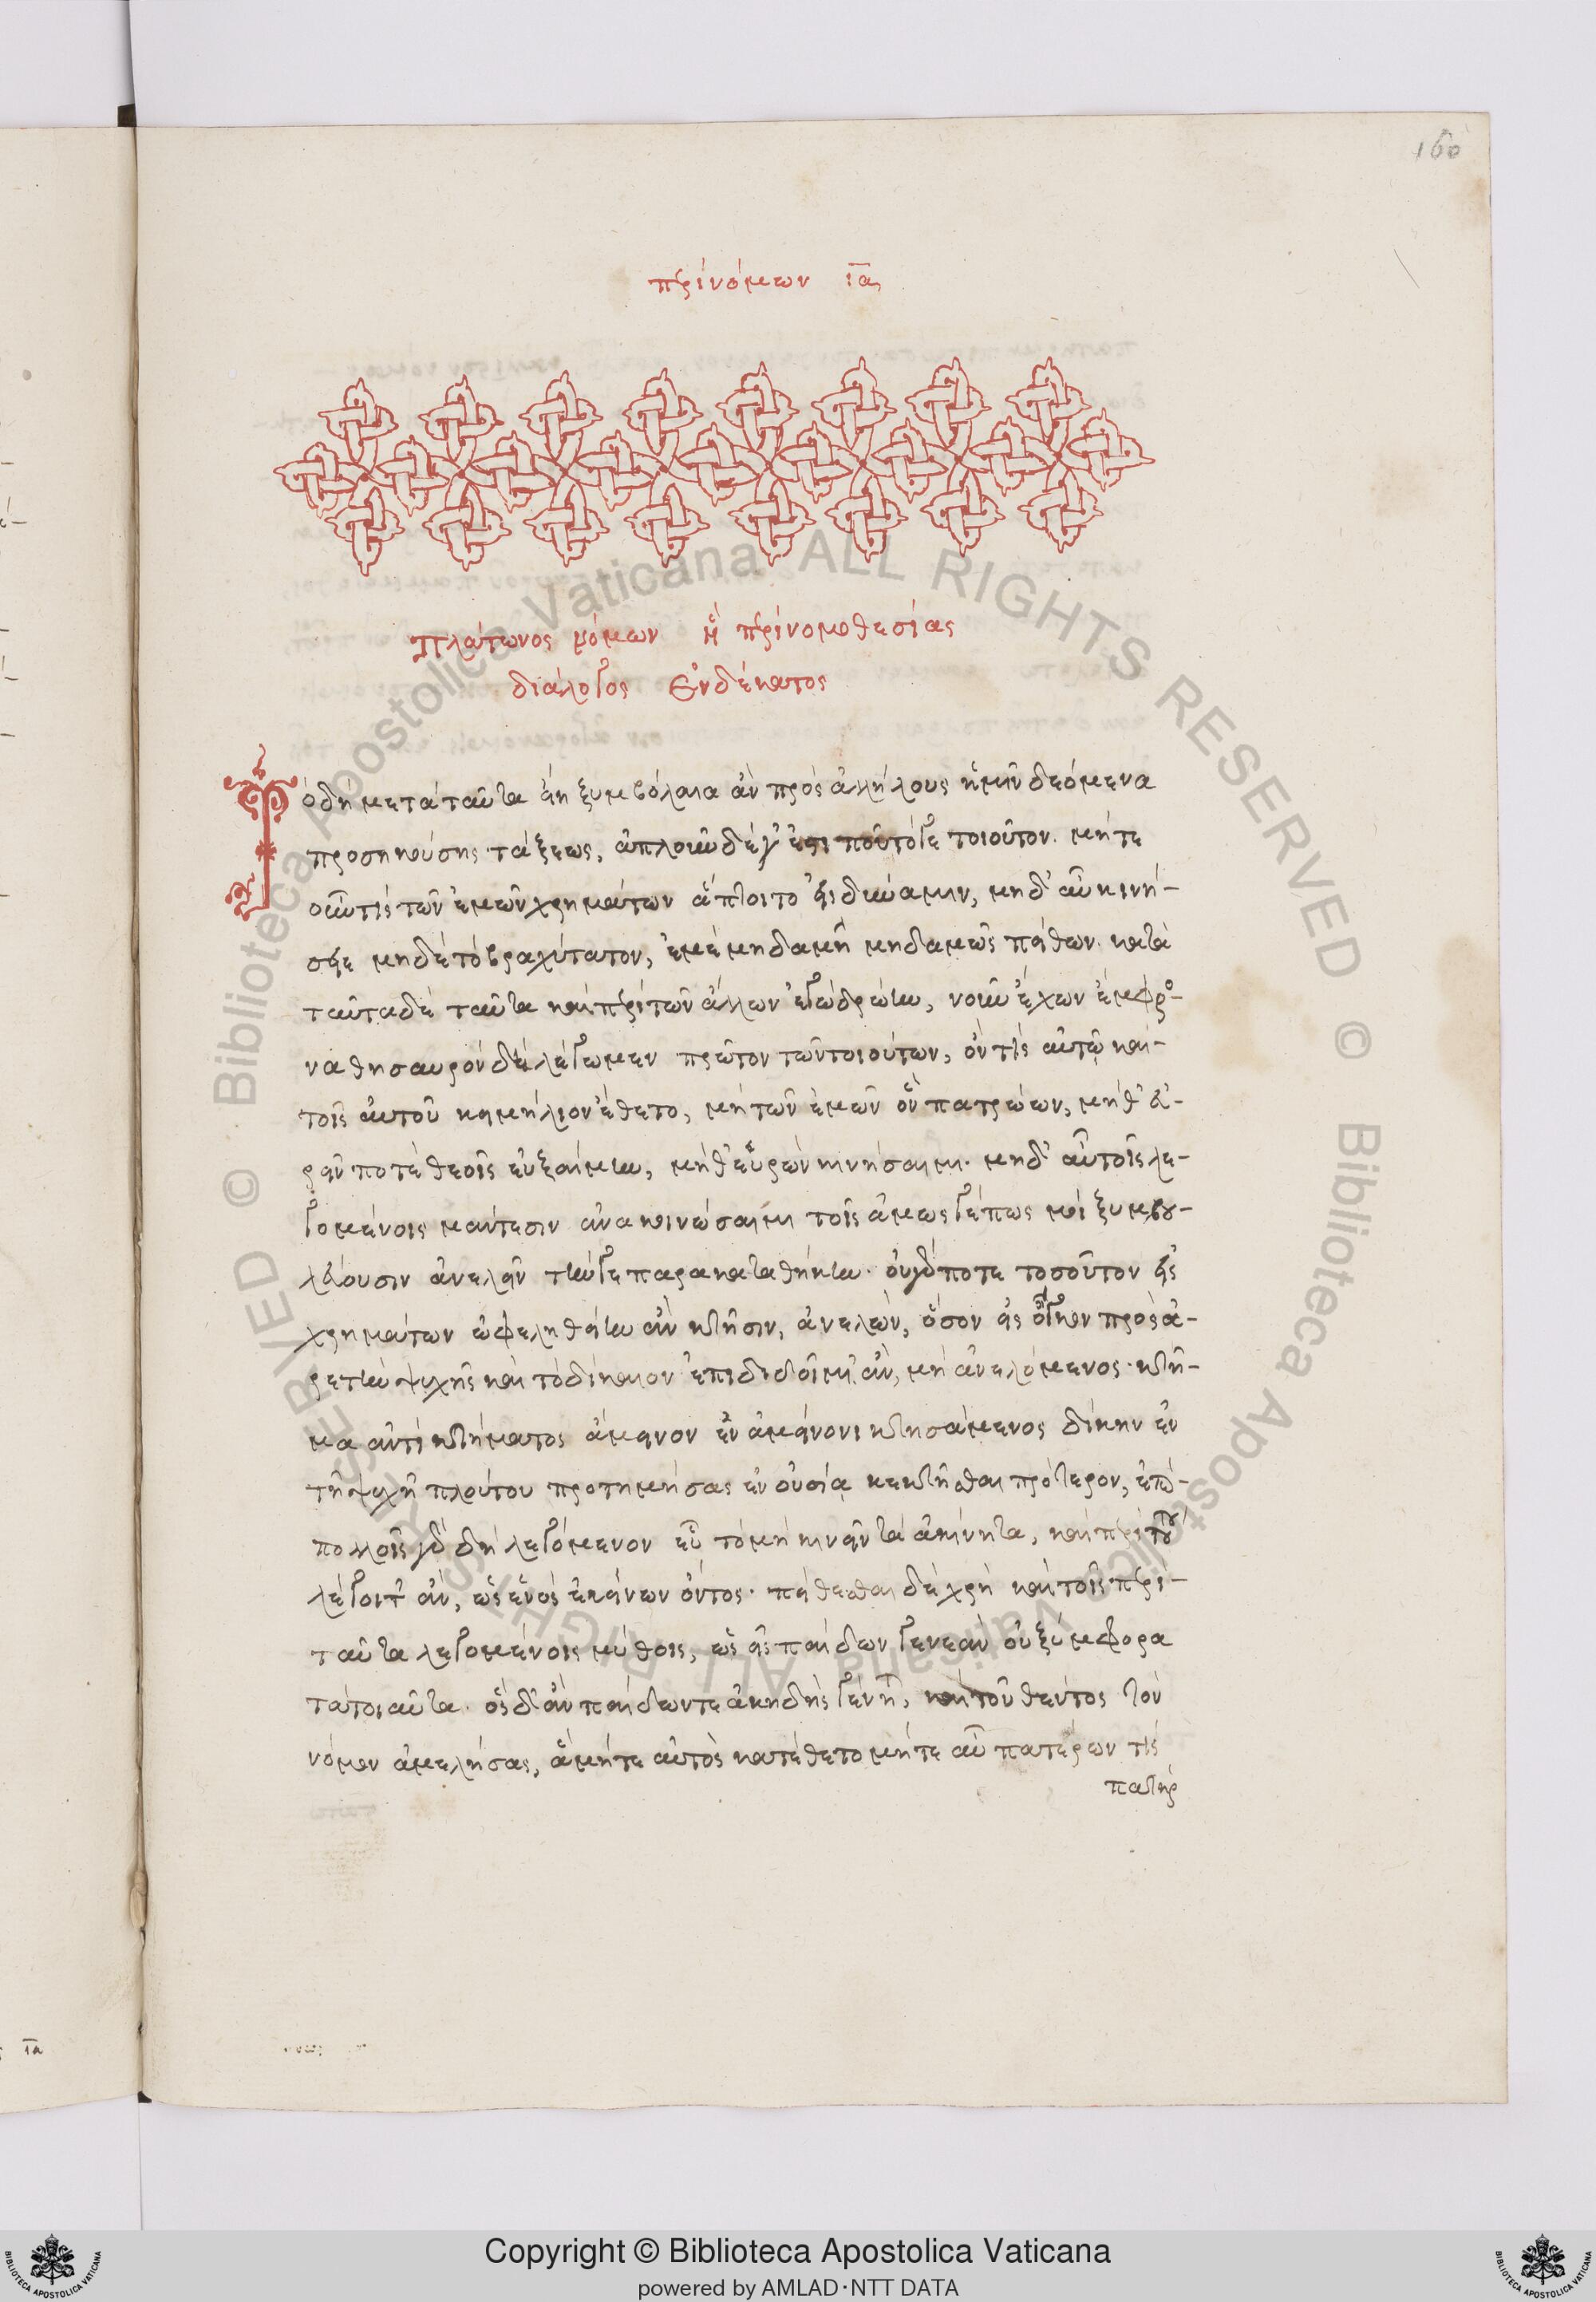 160
περὶ νόμων ια
Πλάτωνος νόμων ἢ περὶ νομοθεσίας
διάλογος ἑνδέκατος
Τὸ δὴ μετὰ ταῦτα εἴη ξυμβόλαια ἂν πρὸς ἀλλήλους ἡμῖν δεόμενα
προσηκούσης τάξεως, ἁπλοῦν δέ γ' ἐστί που τό γε τοιοῦτον. μήτε
οὖν τις τῶν ἐμῶν χρημάτων ἅπτοιτο εἰς δύναμιν, μηδ' αὖ κινή-
σειε μηδὲ τὸ βραχύτατον, ἐμὲ μηδαμῇ μηδαμῶς πείθων. κατὰ
ταὐτὰ δὲ ταῦτα καὶ περὶ τῶν ἄλλων ἐγὼ δρῴην, νοῦν ἔχων ἔμφρο-
να θησαυρὸν δὲ λέγωμεν πρῶτον τῶν τοιούτων, ὅν τις αὑτῷ καὶ
τοῖς αὑτοῦ κειμήλιον ἔθετο, μὴ τῶν ἐμῶν ὢν πατρώων, μήθ' εὑ-
ρεῖν ποτὲ θεοῖς εὐξαίμην, μήθ' εὑρὼν κινήσαιμι. μηδ' αὖ τοῖς λε-
γομένοις μάντεσιν ἀνακοινώσαιμι τοῖς ἀμῶς γέ πως μοι ξυμβου-
λεύουσιν ἀνελεῖν τὴν γῇ παρακαταθήκην. οὐ γάρ ποτε τοσοῦτον εἰς
χρημάτων ὠφεληθείην ἂν κτῆσιν, ἀνελών, ὅσον εἰς ὄγκον πρὸς ἀ-
ρετὴν ψυχῆς καὶ τὸ δίκαιον ἐπιδιδοῖμι ἄν, μὴ ἀνελόμενος. κτῆ-
μα ἀντὶ κτήματος ἄμεινον ἐν ἀμείνονι κτησάμενος δίκην ἐν
τῇ ψυχῇ πλούτου προτιμήσας ἐν οὐσίᾳ κεκτῆσθαι πρότερον, ἐπὶ
πολλοῖς γὰρ δὴ λεγόμενον εὖ τὸ μὴ κινεῖν τὰ ἀκίνητα, καὶ περὶ τούτου
λέγοιτ' ἄν, ὡς ἑνὸς ἐκείνων ὄντος. πείθεσθαι δὲ χρὴ καὶ τοῖς περὶ
ταῦτα λεγομένοις μύθοις, ὡς εἰς παίδων γενεὰν οὐ ξύμφορα
τὰ τοιαῦτα. ὃς δ' ἂν παίδων τε ἀκηδὴς γένηται, καὶ τοῦ θέντος τὸν
νόμον ἀμελήσας, ἃ μήτε αὐτὸς κατέθετο μήτε αὖ πατέρων τις
πατὴρ
ια
Copyright © Biblioteca Apostolica Vaticana
powered by AMLAD·NTT DATA